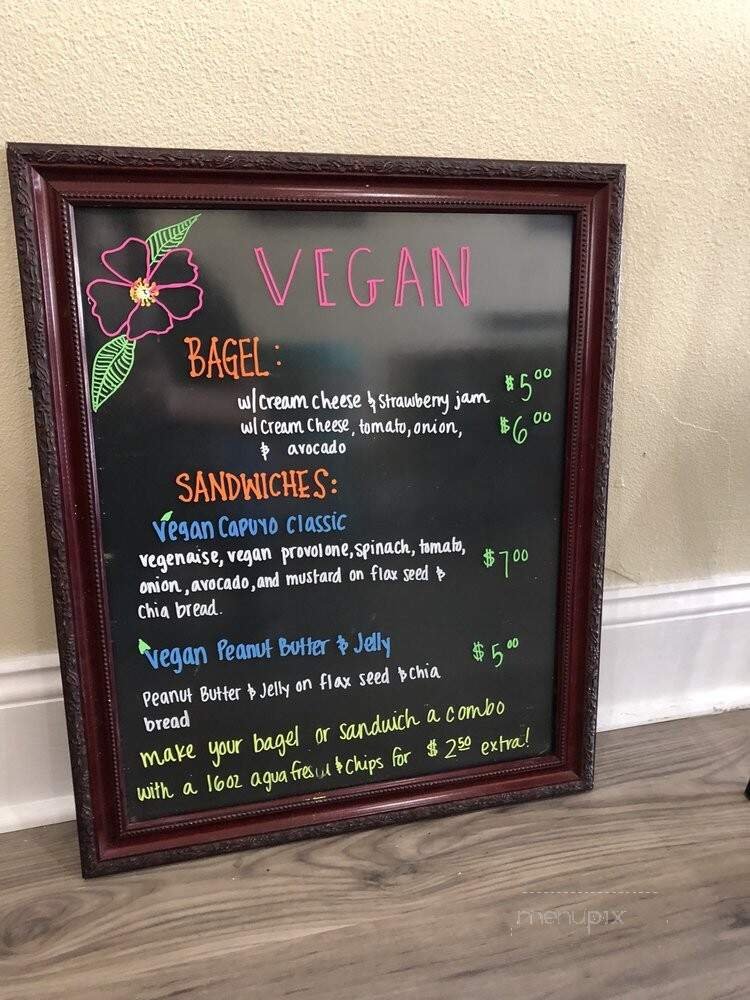 VEGAN
BAGEL:
w/ Cream Cheese & Strawberry jam $5.00
w/ Cream Cheese, tomato, onion, $6.00
& avocado
SANDWICHES:
Vegan Capuyo Classic
vegenaise, vegan provolone, spinach, tomato, $7.00
onion, avocado, and mustard on flax seed &
chia bread.
Vegan Peanut Butter & Jelly $5.00
Peanut Butter & Jelly on flax seed & chia
bread
make your bagel or sandwich a combo
with a 16oz agua fresca & chips for $2.50 extra!
menupix